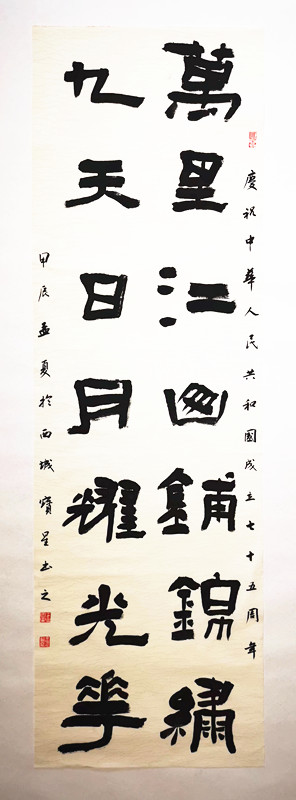 慶祝中華人民共和國成立七十五周年
萬里江山鋪錦繡
九天日月耀光華
甲辰孟夏於西城寶星書之